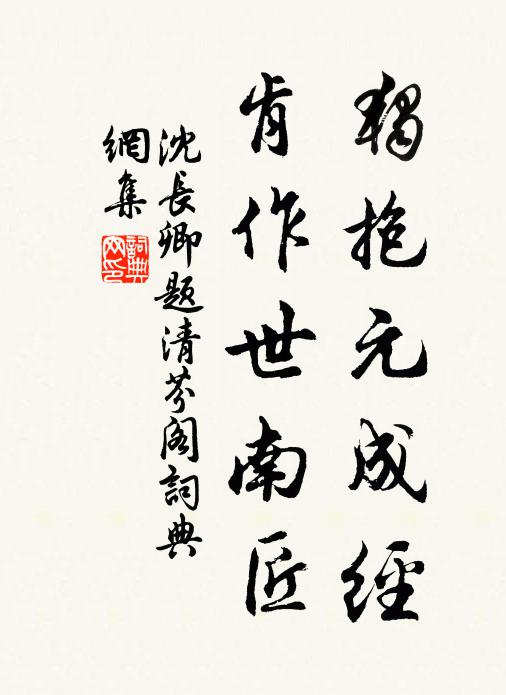 獨抱元成經
肯作世南匠
沈長卿題清芬閣詞典
網集
詞典網印